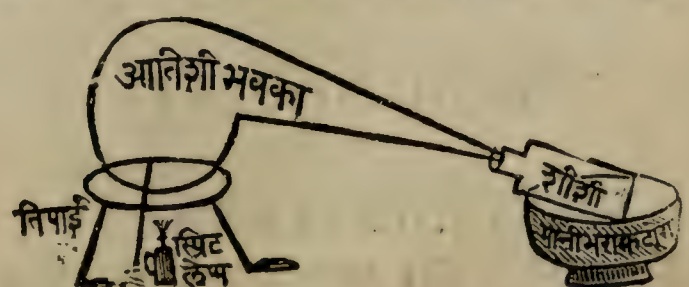 आतिशी भवका
शीशी
तिपाई
स्प्रिट
लम्प
पानी भरा कटोरा